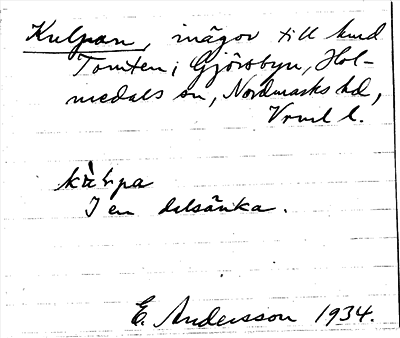 Kulpan, inägor till hmd
Tomten i Gjörsbyn, Hol-
medals sn, Nordmarks hd,
Vrml l.
kàlpa
I en dalsänka.
E. Andersson 1934.